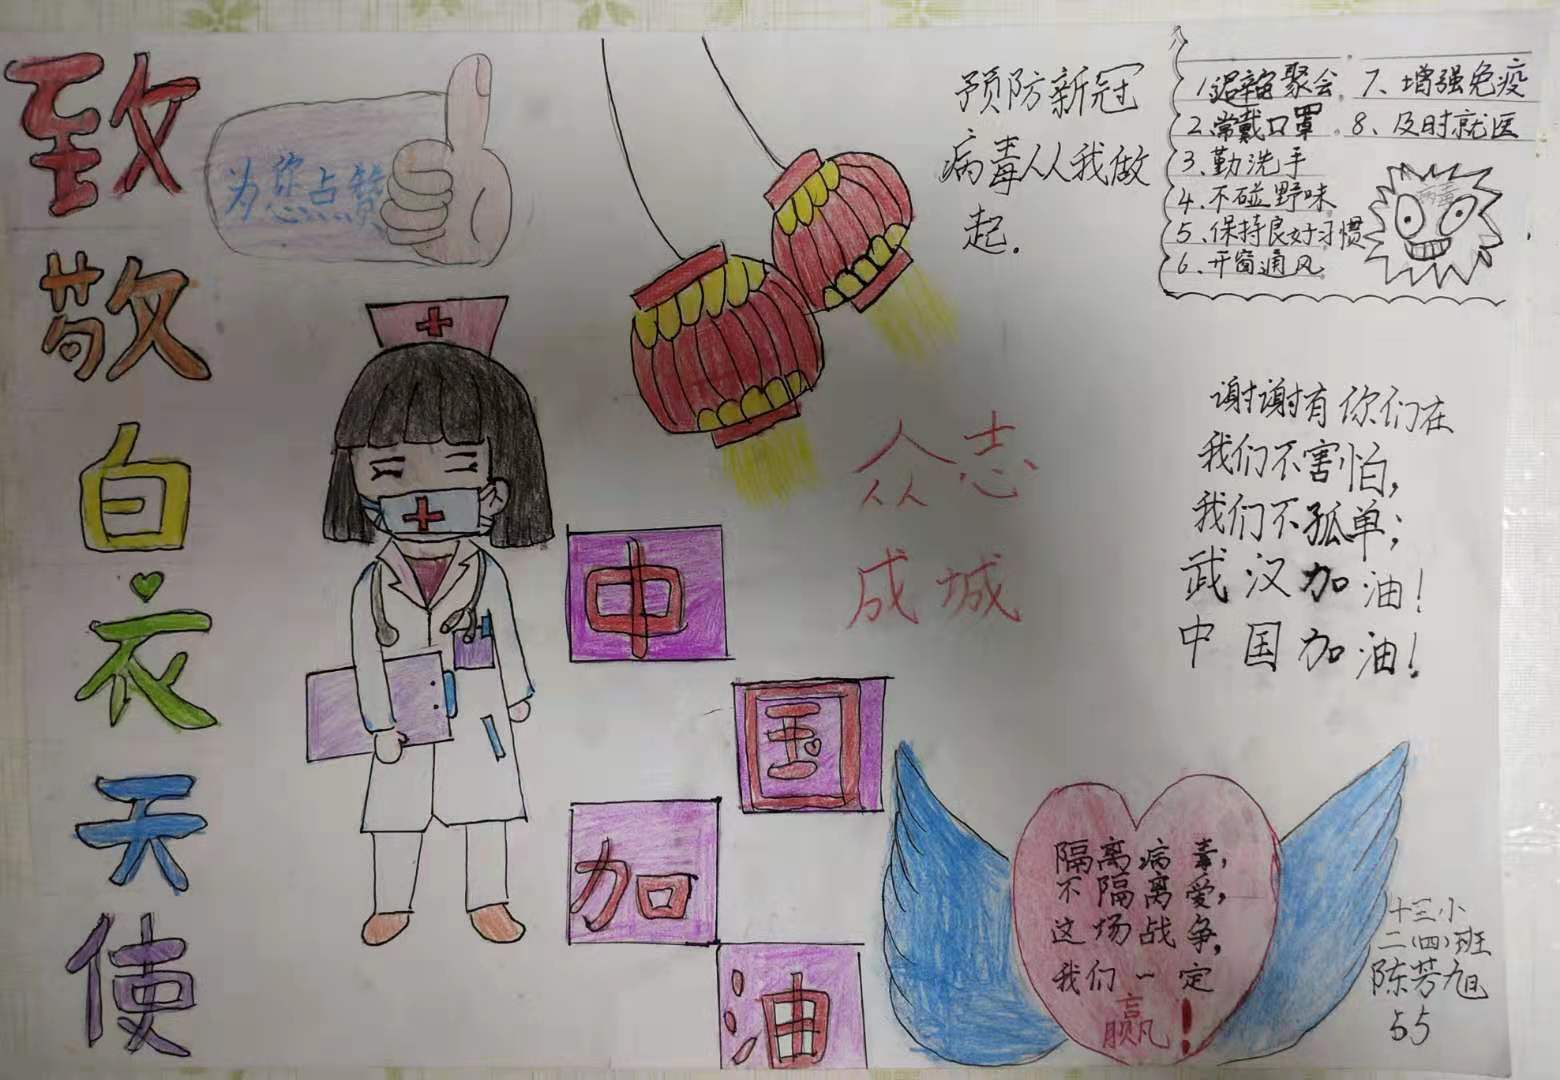 致敬白衣天使
为你点赞
预防新冠
病毒从我做
起.
1.避宙聚会.
2.常戴口罩.
3.勤洗手
4.不碰野味
5、保持良好习惯
6.开窗通风
7、增强免疫
8、及时就医
病毒
众志
成城
谢谢有你们在
我们不害怕,
我们不孤单;
武汉加油!
中国加油!
中
国
加
油
隔离病毒,
不隔离爱,
这场战争,
我们一定
赢!
十三小
二(四)班
陈芳旭
55